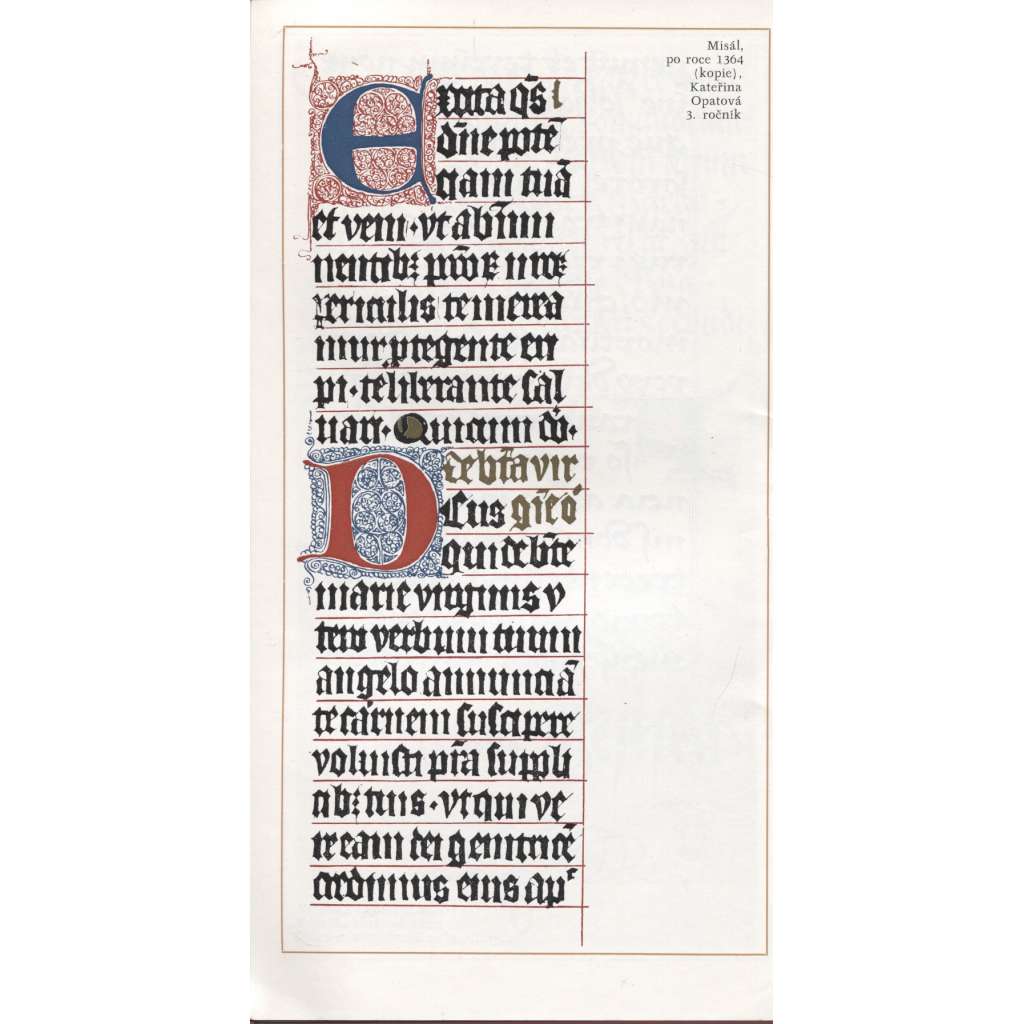 Misál,
po roce 1364
(kopie),
Kateřina
Opatová
3. ročník
Excita q̄s
dn̄e potē
ciam tuā
et veni · ut ab īmi
nentibꝫ
periculis te merea
mur ꝓtegente eri
pi · te liberante sal
vari · Qui cum
de bt̄a vir
Deus
qui de bt̄e
marie virginis v
tero verbum tuum
angelo annunciā
te carnem suscipere
voluisti pr̄a suppli
cibꝫ tuis · ut qui ve
re eam dei genitricē
credimus eius apᵈ